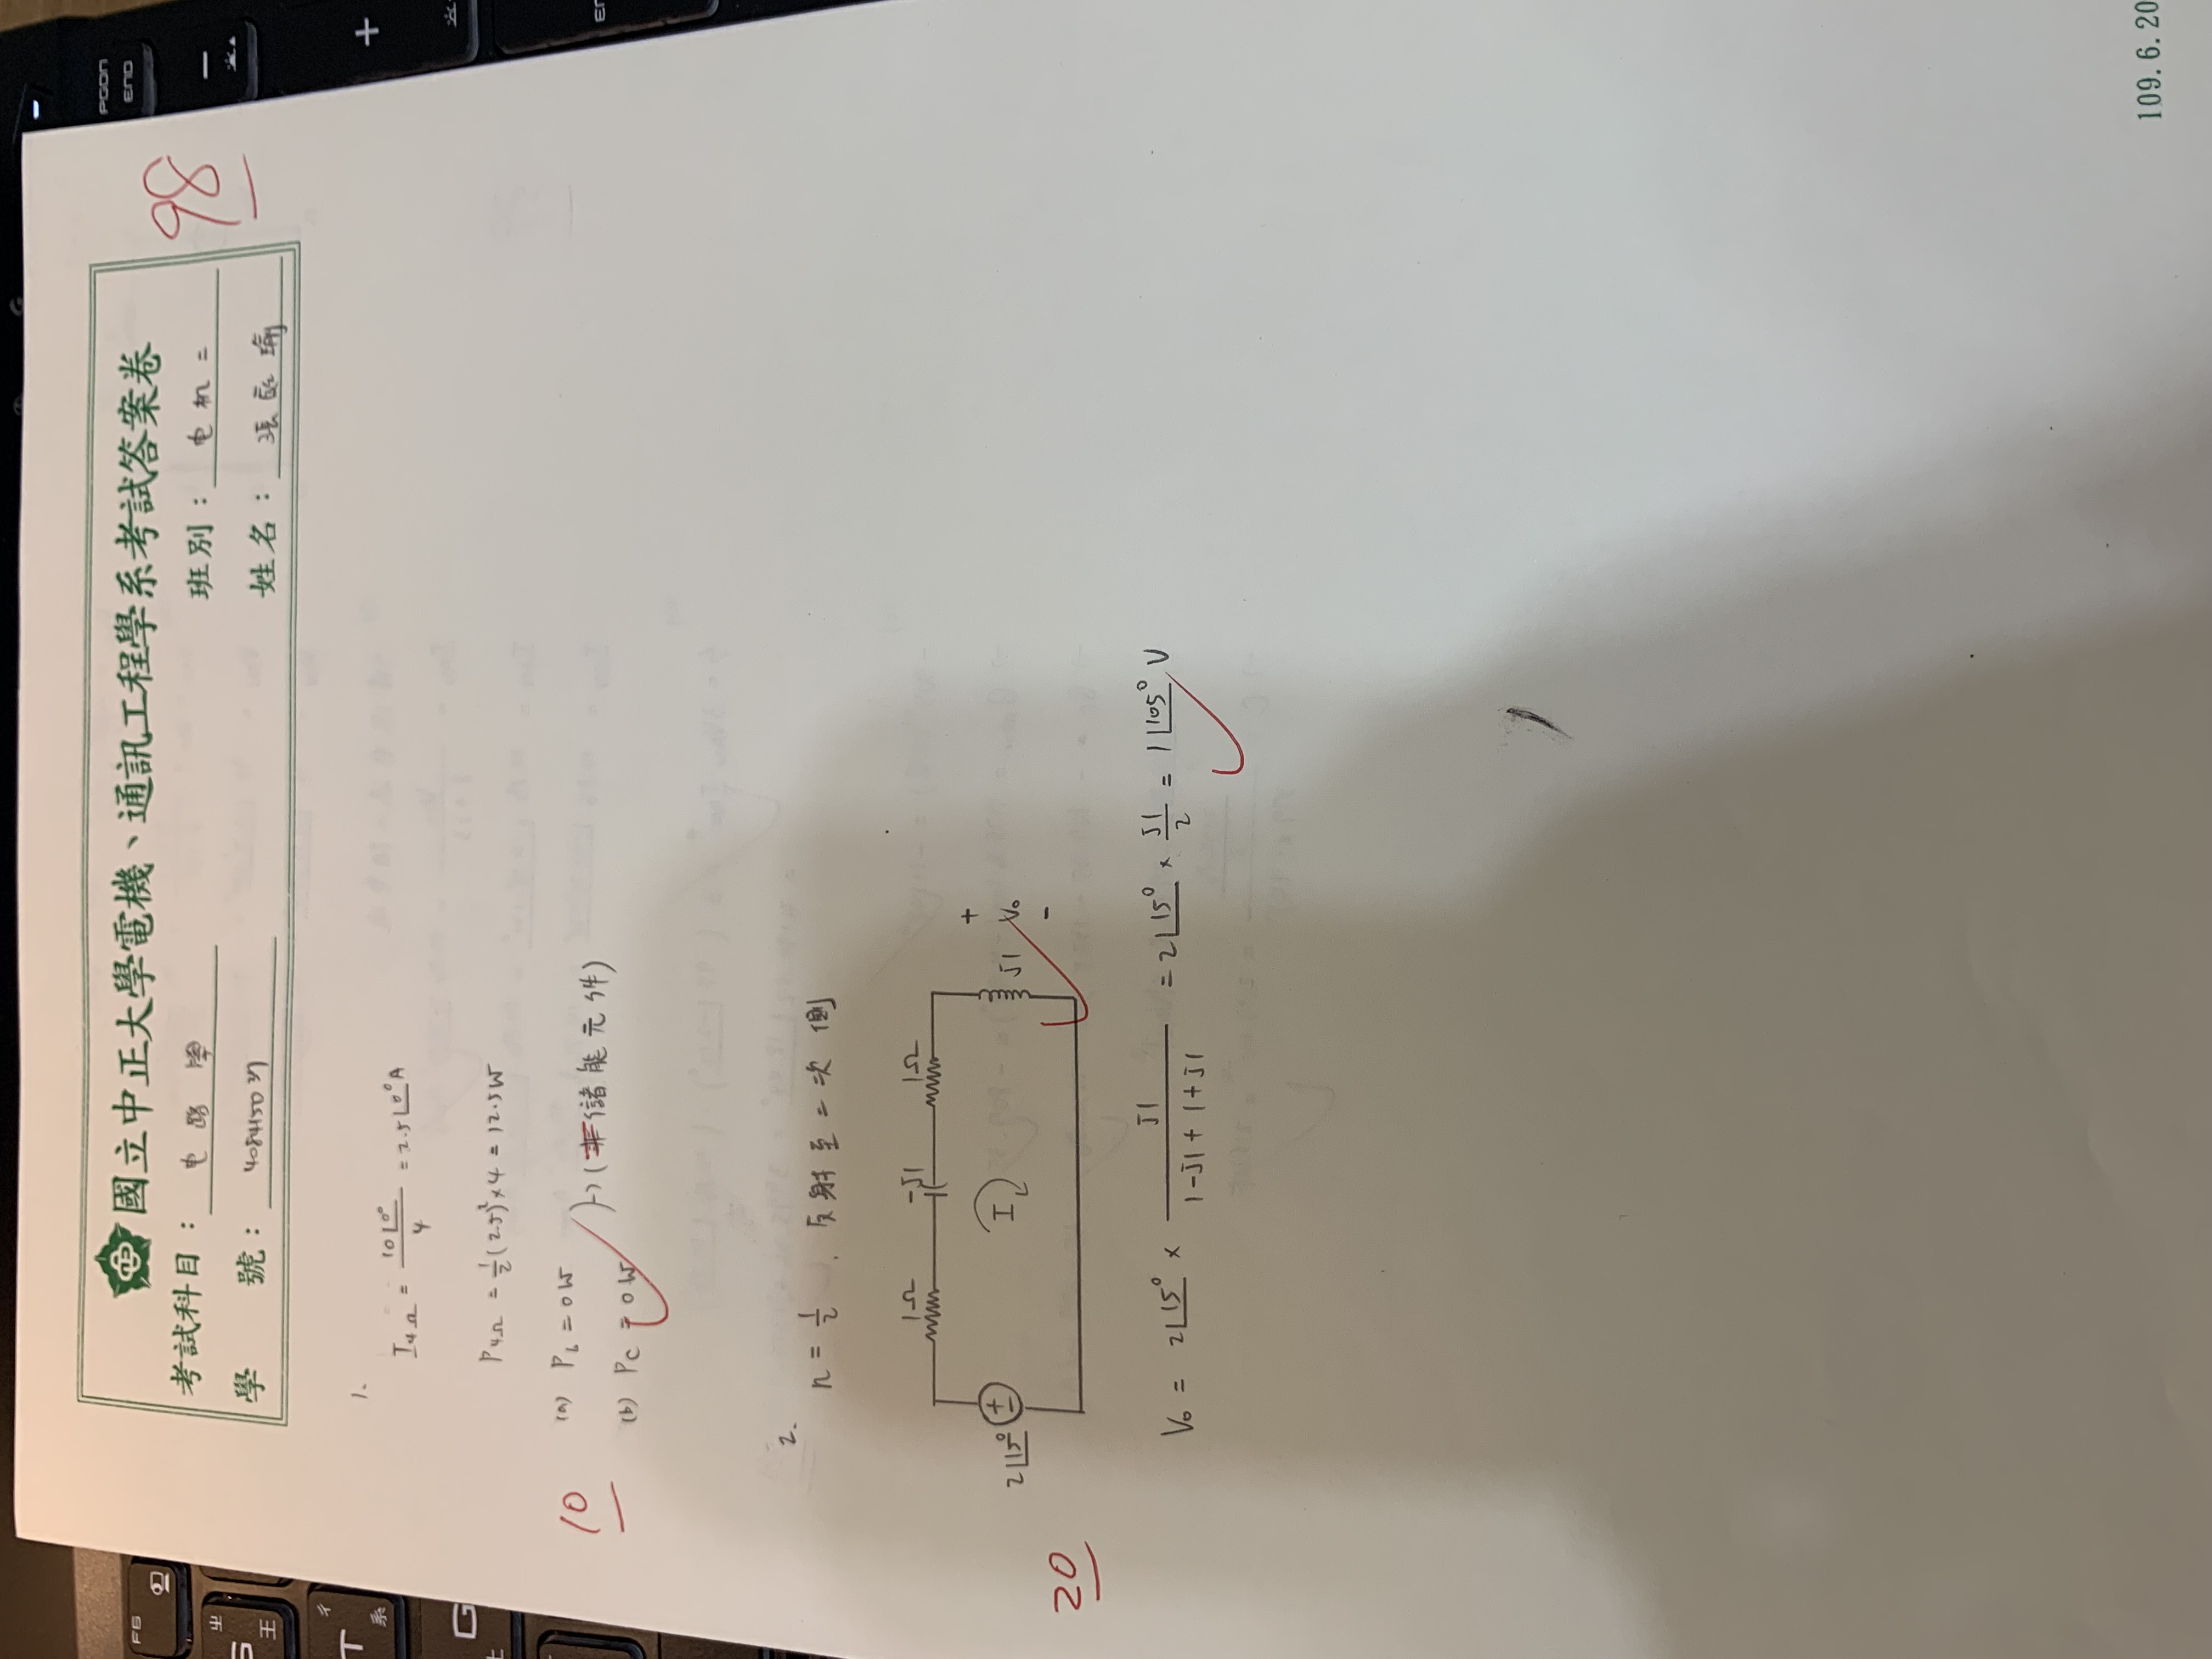 國立中正大學電機、通訊工程學系考試答案卷
考試科目：电路學
班別：电机二
98
學 號：408415037
姓名：張
1.
I4Ω = 10∠0° / 4 = 2.5∠0° A
P4Ω = 1/2 (2.5)² × 4 = 12.5W
10
(a) PL = 0W
(b) PC = 0W
}→(儲能元件)
2.
n = 1/2 , 反射至二次側
1Ω -j1 1Ω
2∠15° + − I j1 + Vo −
20
Vo = 2∠15° × j1 / (1-j1+1+j1) = 2∠15° × j1/2 = 1∠105° V
109.6.20
F6
PGDN
END
G
王
T
彳
系
G